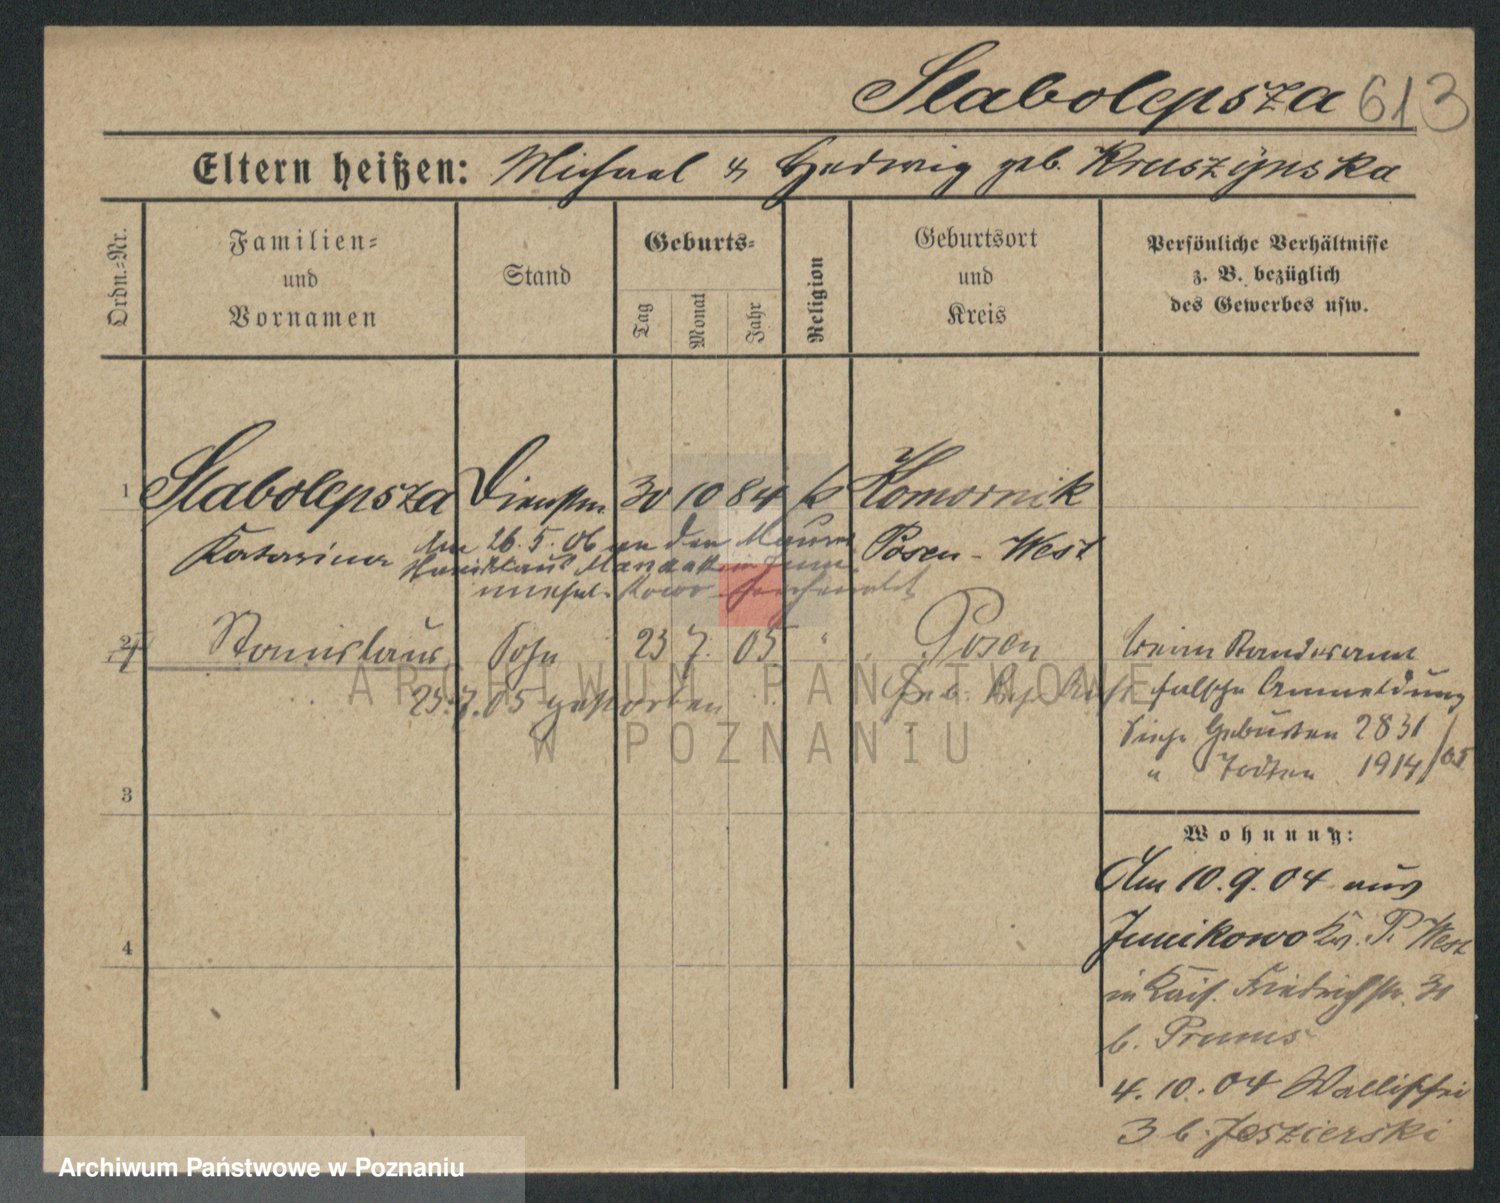 Slabolepsza 613
Eltern heißen: Michael & Hedwig geb. Kruszynska
Ordn.=Nr.
Familien=
und
Vornamen
Stand
Geburts=
Tag
Monat
Jahr
Religion
Geburtsort
und
Kreis
Persönliche Verhältnisse
z. B. bezüglich
des Gewerbes usw.
1 Slabolepsza Dienstm. 30 10 84 k Komornik
Katarina Posen-West
Am 26.5.06 an den Maurer
Stanislaus in Juni
kowo
2 Stanislaus Sohn 23 7. 05 " Posen
25.7.05 gestorben
beim Standesamt
falsche Anmeldung
Siehe Geburten 2831
" Todten 1914/05
3
4
Wohnung:
Am 10.9.04 aus
Junikowo Kr. P. West
in Kais. Friedrichstr. 31
b. Prums
4.10.04 Wallischei
3 b. Jeszierski
ARCHIWUM PAŃSTWOWE
W POZNANIU
Archiwum Państwowe w Poznaniu